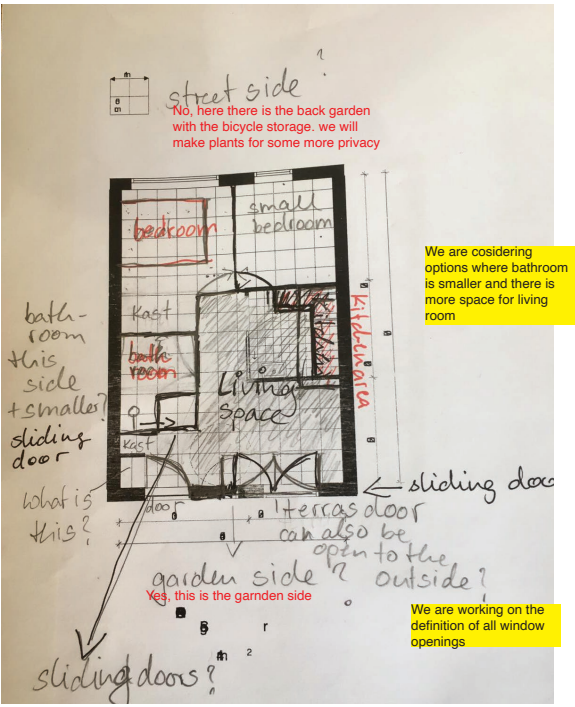 ?
street side
No, here there is the back garden
with the bicycle storage. we will
make plants for some more privacy
bedroom
small
bedroom
We are cosidering
options where bathroom
is smaller and there is
more space for living
room
Kast
Kitchenarea
bath-
room
this
side
+ smaller?
sliding
door
bath
room
Living
space
Kast
What is
this?
door
sliding doo
! terrasdoor
can also be
open to the
outside?
garden side?
Yes, this is the garnden side
We are working on the
definition of all window
openings
sliding doors?